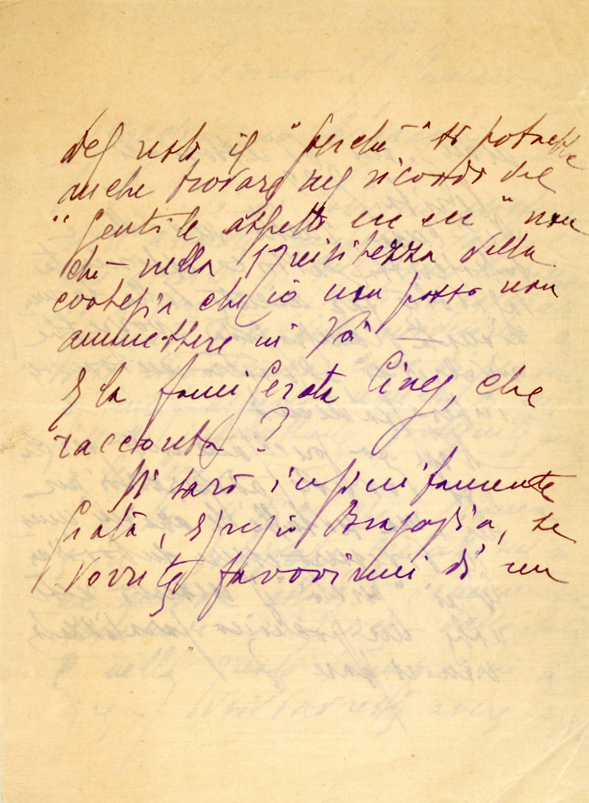 del resto il "perchè" si potrebbe
anche trovare nel ricordo del
"gentile aspetto" non
chè – nella squisitezza della
cortesia che io non posso non
ammettere in Voi –
E la famigerata Cines, che
racconta?
Vi sarò infinitamente
grata, egregio Bragaglia, se
vorrete favorirmi di un